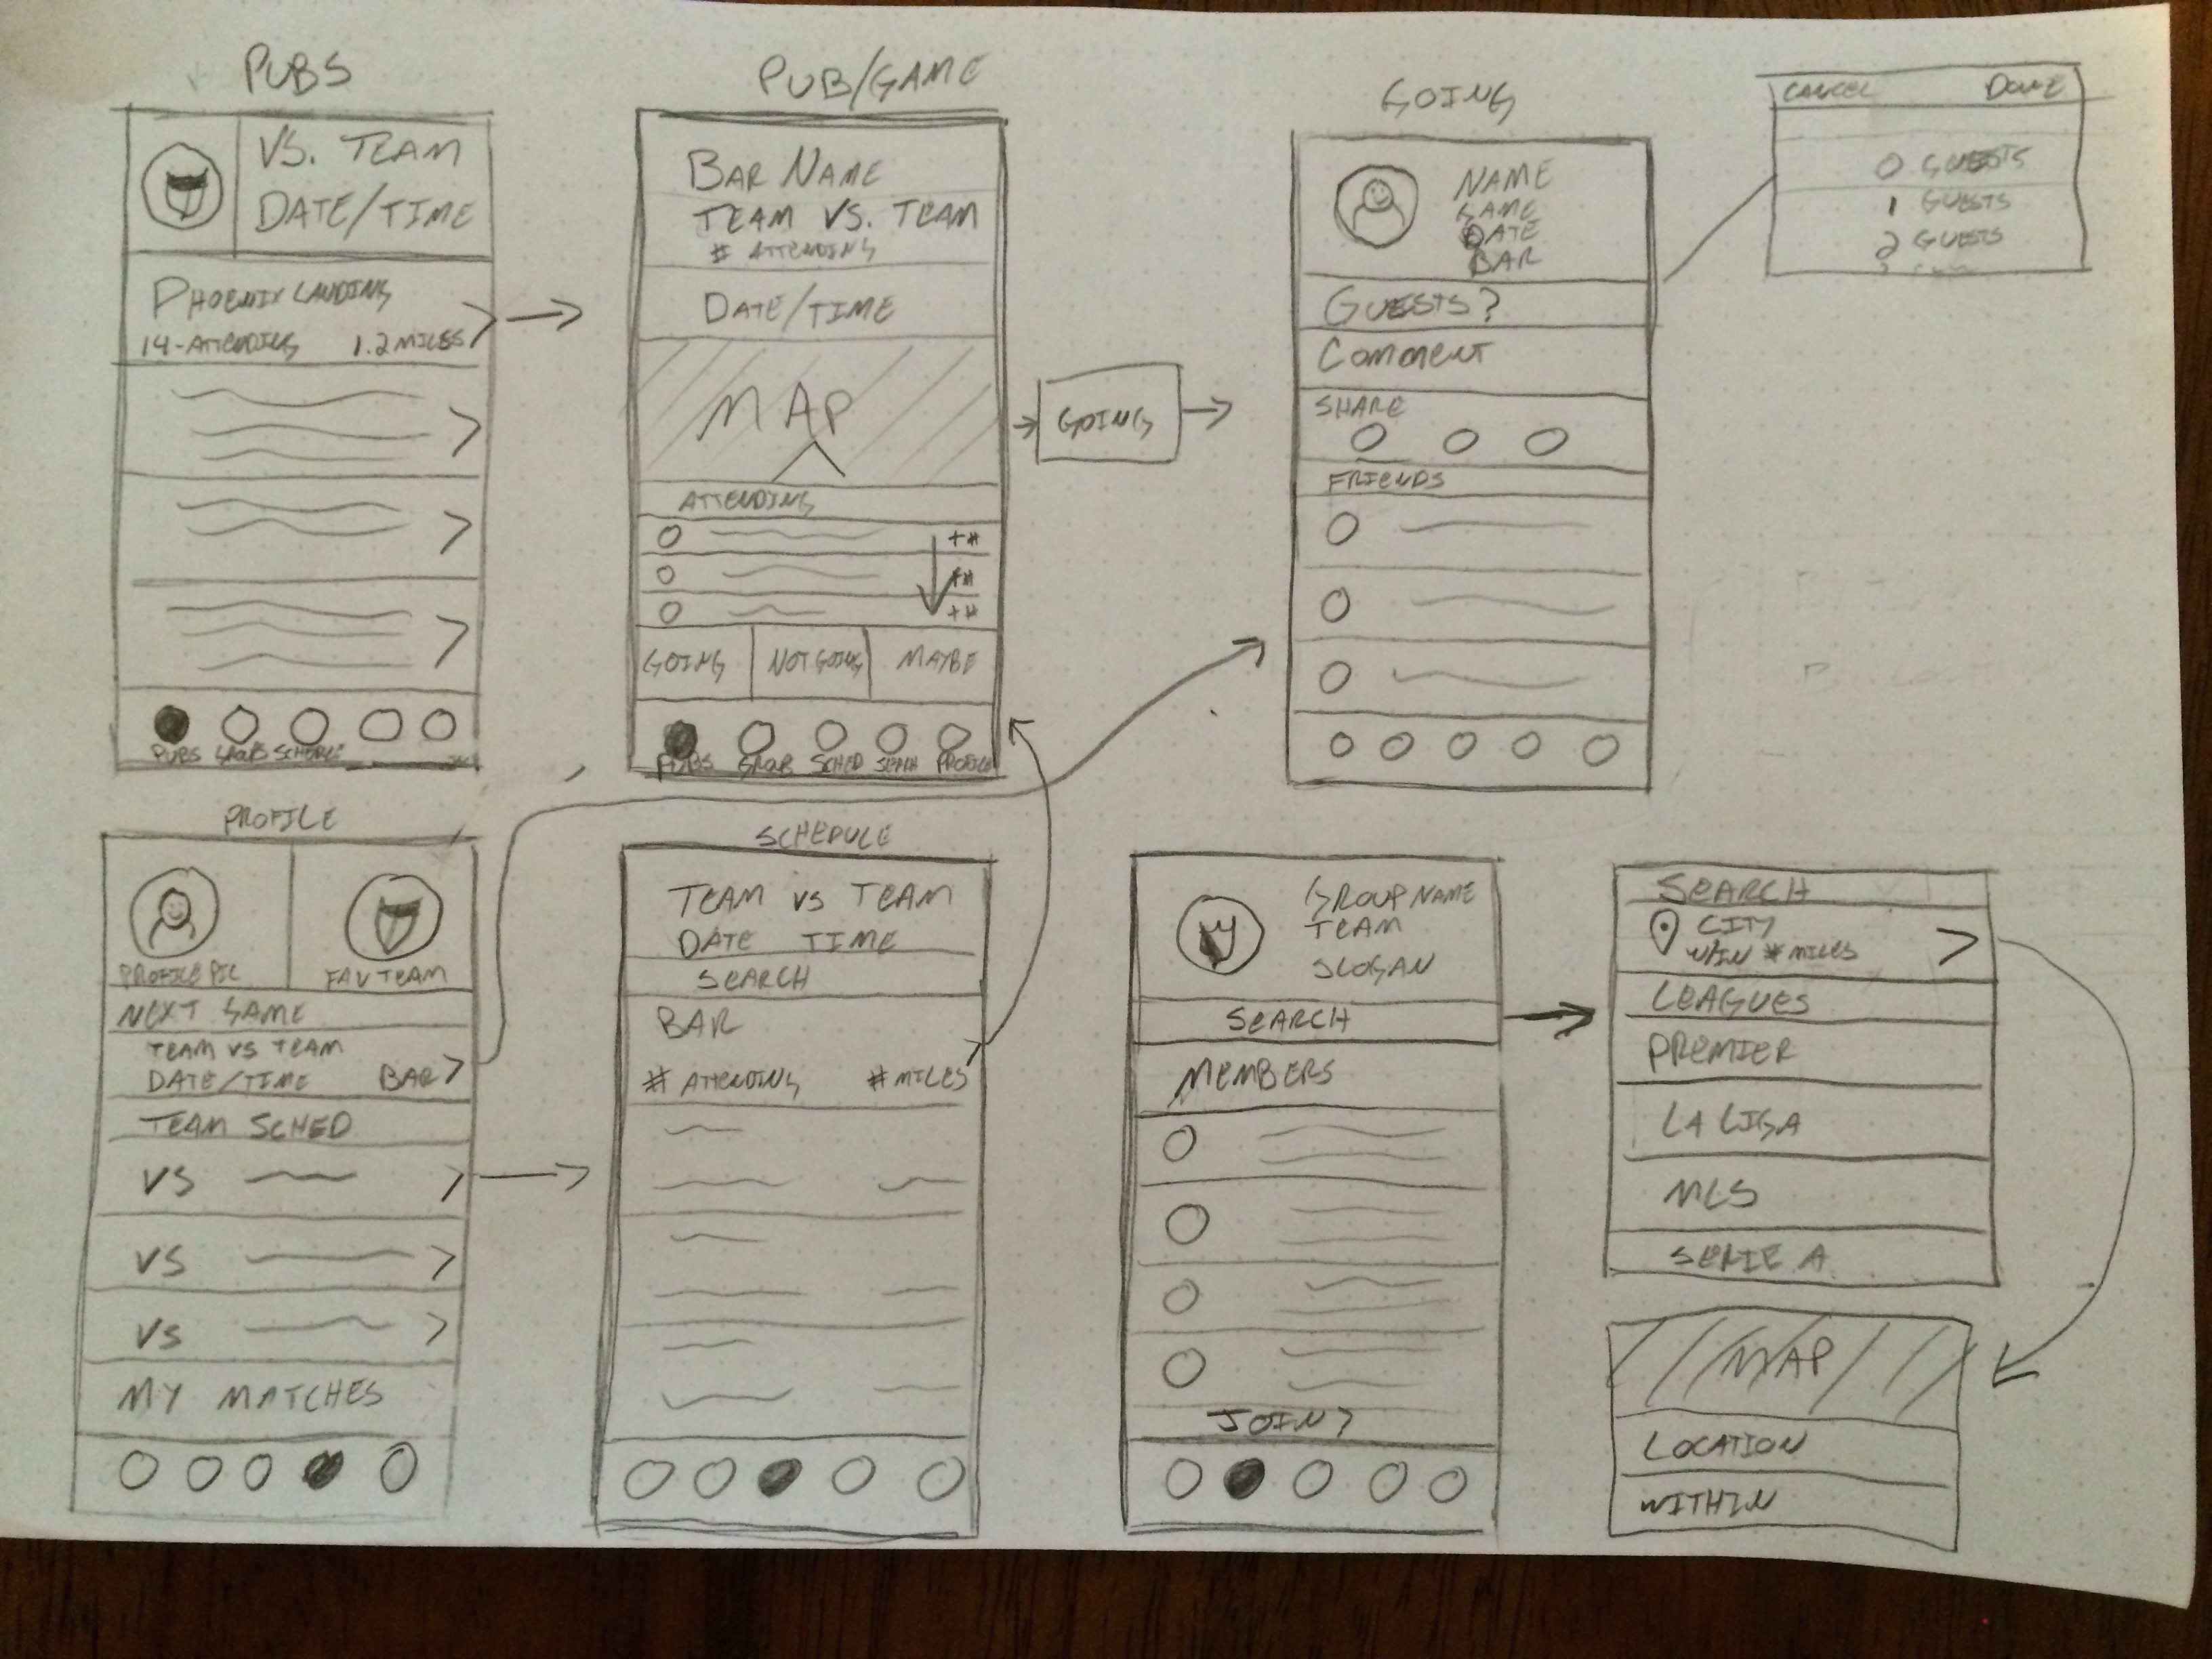 PUBS
VS. TEAM
DATE/TIME
PHOENIX LANDING
14-ATTENDING 1.2 MILES
PUBS
PUB/GAME
BAR NAME
TEAM VS. TEAM
# ATTENDING
DATE/TIME
MAP
ATTENDING
+#
+#
+#
GOING NOT GOING MAYBE
PUBS SCHED PROFILE
GOING
GOING
NAME
GAME
DATE
BAR
GUESTS?
COMMENT
SHARE
FRIENDS
CANCEL DONE
0 GUESTS
1 GUESTS
2 GUESTS
PROFILE
PROFILE PIC FAV TEAM
NEXT GAME
TEAM VS TEAM
DATE/TIME BAR
TEAM SCHED
VS
VS
VS
MY MATCHES
SCHEDULE
TEAM VS TEAM
DATE TIME
SEARCH
BAR
# ATTENDING # MILES
GROUP NAME
TEAM
SLOGAN
SEARCH
MEMBERS
JOIN?
SEARCH
CITY
W/IN # MILES
LEAGUES
PREMIER
LA LIGA
MLS
SERIE A
MAP
LOCATION
WITHIN